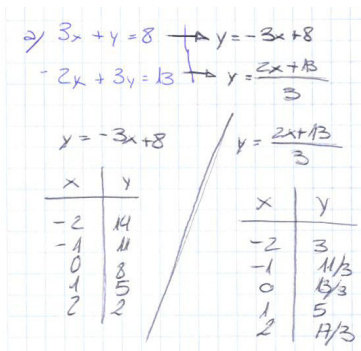 a) 3x + y = 8 → y = -3x + 8
-2x + 3y = 13 → y = (2x + 13)/3
y = -3x + 8
x y
-2 14
-1 11
0 8
1 5
2 2
y = (2x + 13)/3
x y
-2 3
-1 11/3
0 13/3
1 5
2 17/3